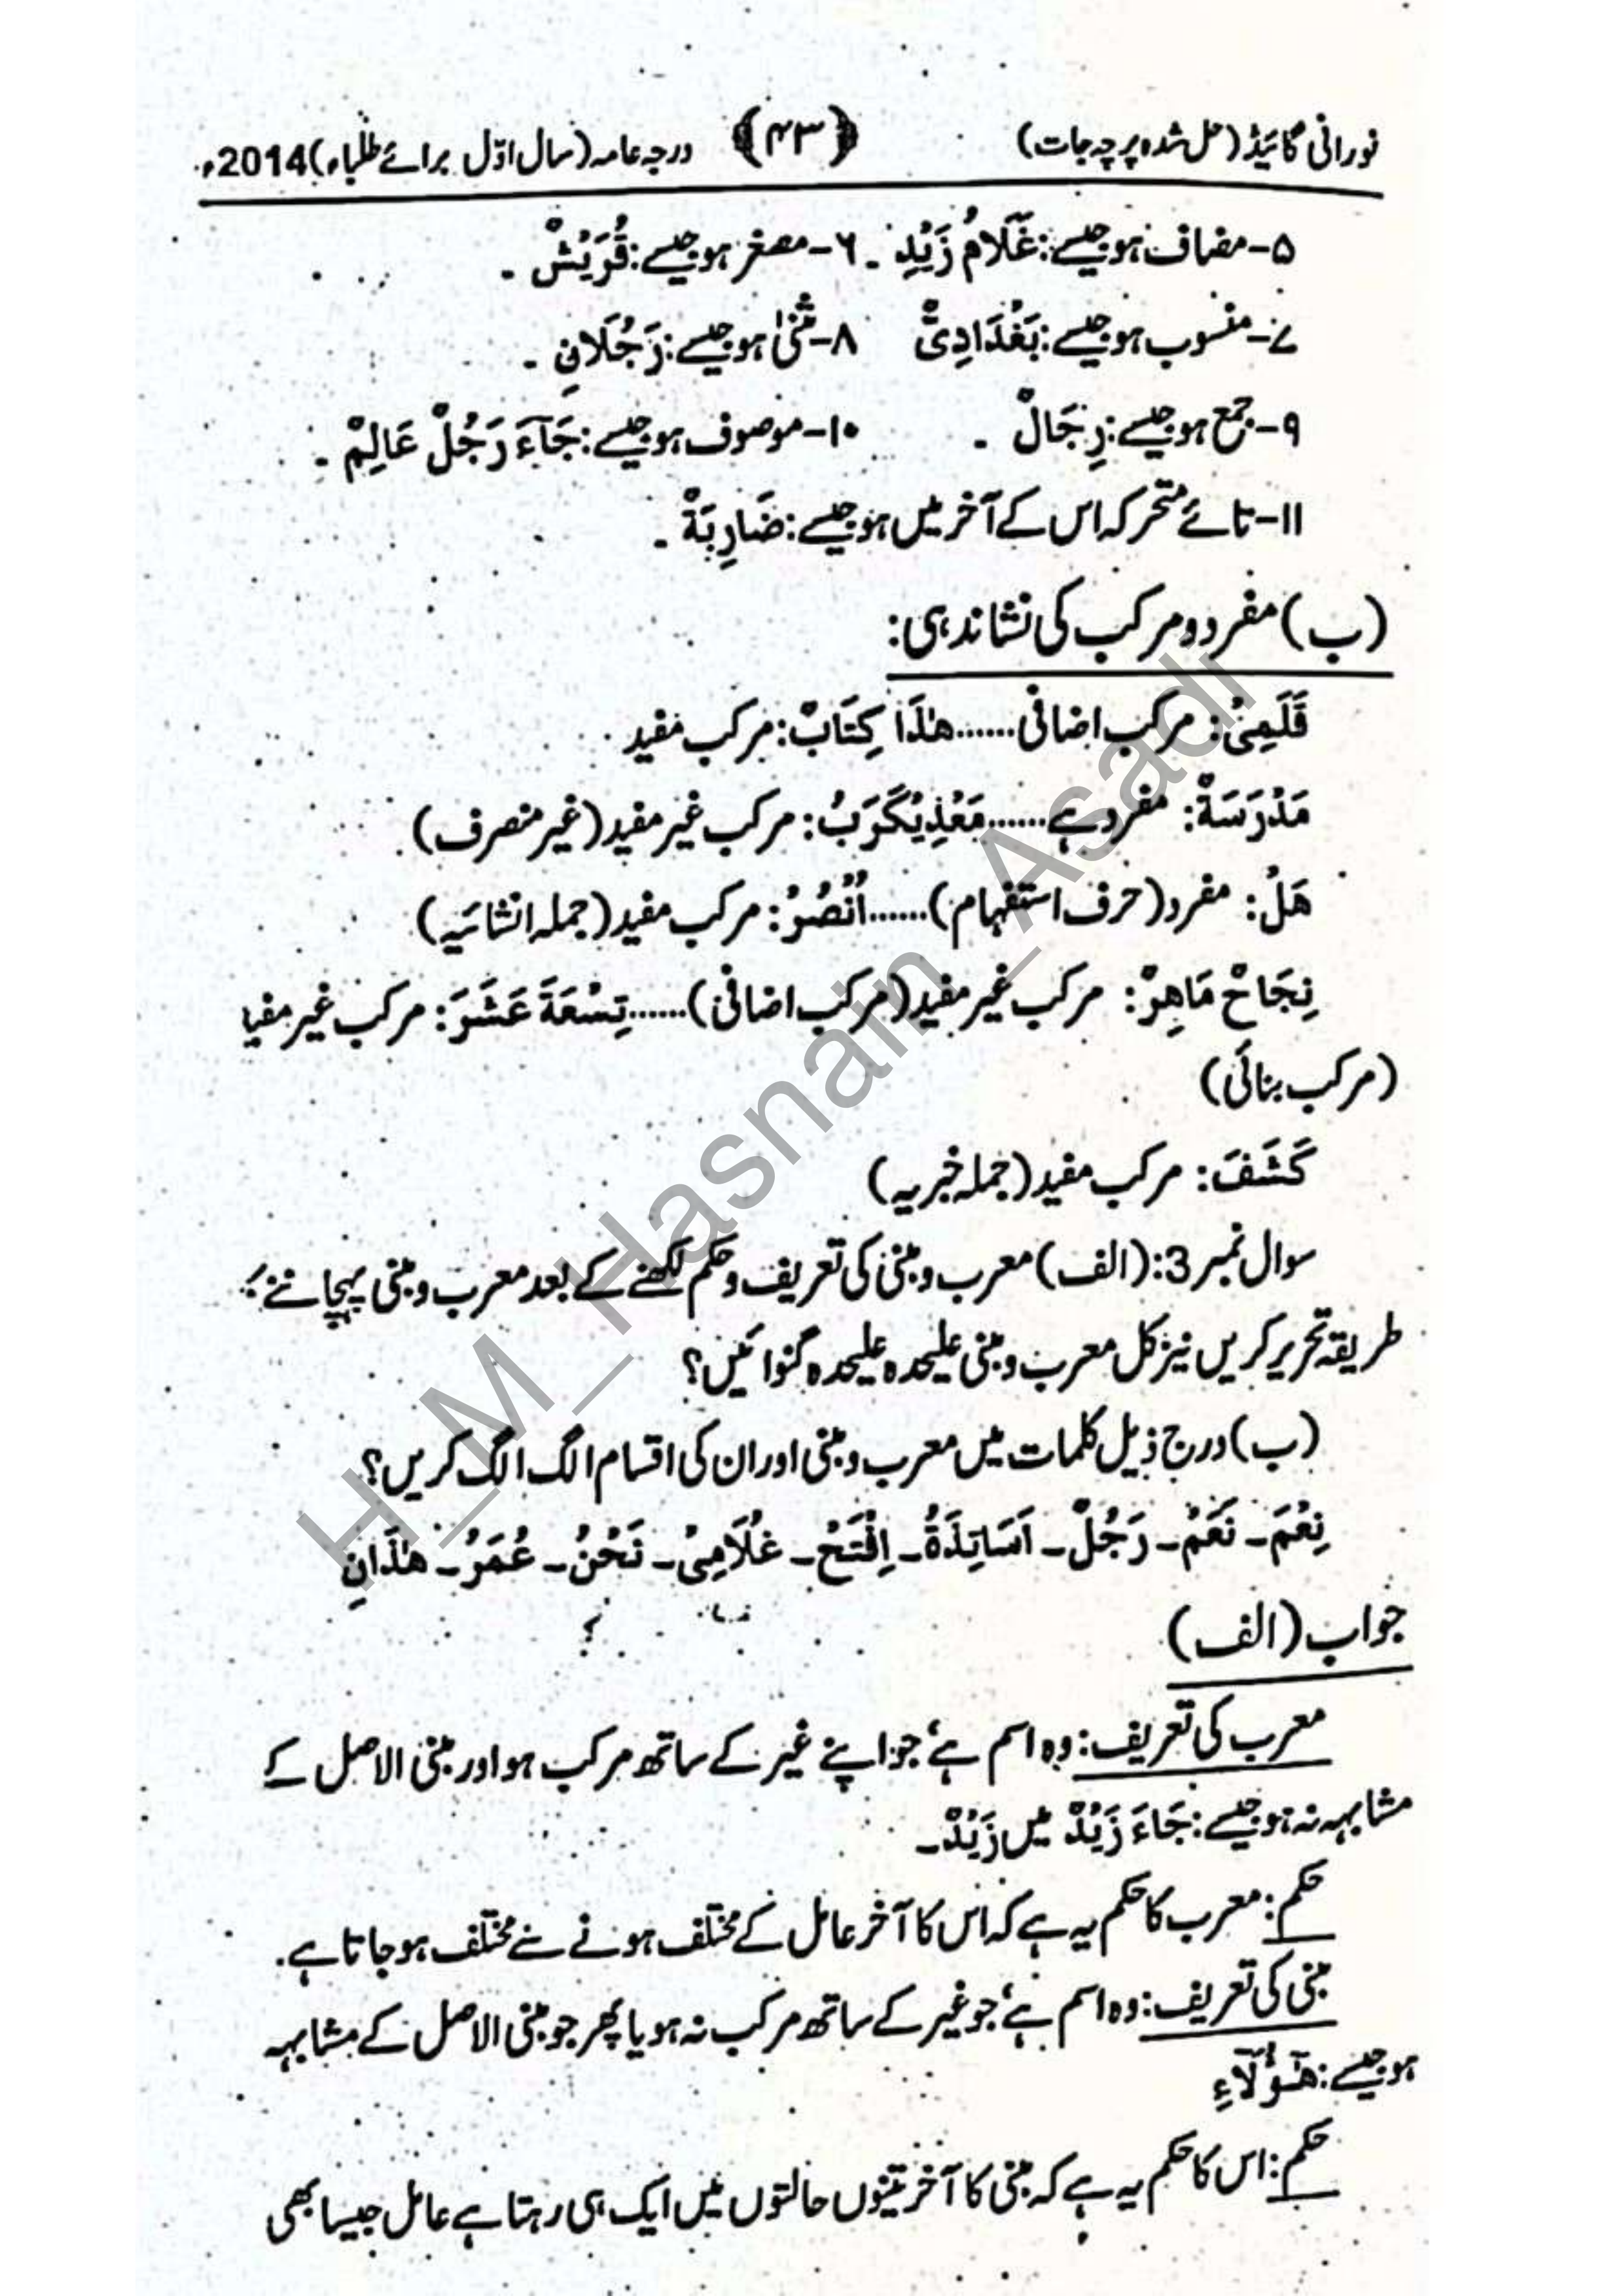 نورانی گائیڈ (حل شدہ پرچہ جات) ﴿۴۳﴾ درجہ عامہ (سال اوّل برائے طلباء) 2014ء
۵-مضاف ہو جیسے: غُلَامُ زَيْدٍ ۔ ۶-مصغر ہو جیسے: قُرَيْشٌ ۔
۷-منسوب ہو جیسے: بَغْدَادِیٌّ ۸-مثنیٰ ہو جیسے: رَجُلَانِ ۔
۹-جمع ہو جیسے: رِجَالٌ ۔ ۱۰-موصوف ہو جیسے: جَآءَ رَجُلٌ عَالِمٌ ۔
۱۱-تائے متحرکہ اس کے آخر میں ہو جیسے: ضَارِبَةٌ ۔
(ب) مفرد و مرکب کی نشاندہی:
قَلَمِیْ: مرکب اضافی......هٰذَا كِتَابٌ: مرکب مفید
مَدْرَسَةٌ: مفرد ہے......مَعْدِيْكَرَبُ: مرکب غیر مفید (غیر منصرف)
هَلْ: مفرد (حرف استفہام)......اُنْصُرْ: مرکب مفید (جملہ انشائیہ)
نِجَاحُ مَاهِرٍ: مرکب غیر مفید (مرکب اضافی)......تِسْعَةَ عَشَرَ: مرکب غیر مفید
(مرکب بنائی)
كَشَفَ: مرکب مفید (جملہ خبریہ)
سوال نمبر 3: (الف) معرب و مبنی کی تعریف و حکم لکھنے کے بعد معرب و مبنی پہچاننے کا
طریقہ تحریر کریں نیز کل معرب و مبنی علیحدہ علیحدہ گنوائیں؟
(ب) درج ذیل کلمات میں معرب و مبنی اور ان کی اقسام الگ الگ کریں؟
نِعْمَ۔ نَعَمْ۔ رَجُلٌ۔ اَسَاتِذَةٌ۔ اِفْتَحْ۔ غُلَامِیْ۔ نَحْنُ۔ عُمَرُ۔ هٰذَانِ
جواب (الف)
معرب کی تعریف: وہ اسم ہے، جو اپنے غیر کے ساتھ مرکب ہو اور مبنی الاصل کے
مشابہہ نہ ہو جیسے: جَاءَ زَيْدٌ میں زَيْدٌ۔
حکم: معرب کا حکم یہ ہے کہ اس کا آخر عامل کے مختلف ہونے سے مختلف ہو جاتا ہے۔
مبنی کی تعریف: وہ اسم ہے، جو غیر کے ساتھ مرکب نہ ہو یا پھر جو مبنی الاصل کے مشابہہ
ہو جیسے: هٰٓؤُلَآءِ
حکم: اس کا حکم یہ ہے کہ مبنی کا آخر تینوں حالتوں میں ایک ہی رہتا ہے عامل جیسا بھی
H_M_Hasnain_Asadi